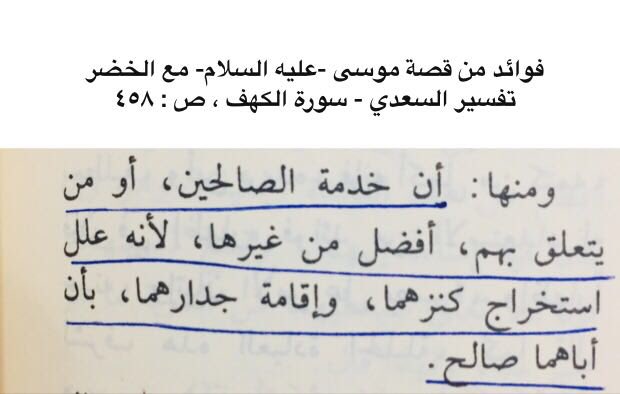 فوائد من قصة موسى -عليه السلام- مع الخضر
تفسير السعدي - سورة الكهف ، ص : ٤٥٨
ومنها: أن خدمة الصالحين، أو من
يتعلق بهم، أفضل من غيرها، لأنه علل
استخراج كنزهما، وإقامة جدارهما، بأن
أباهما صالح.